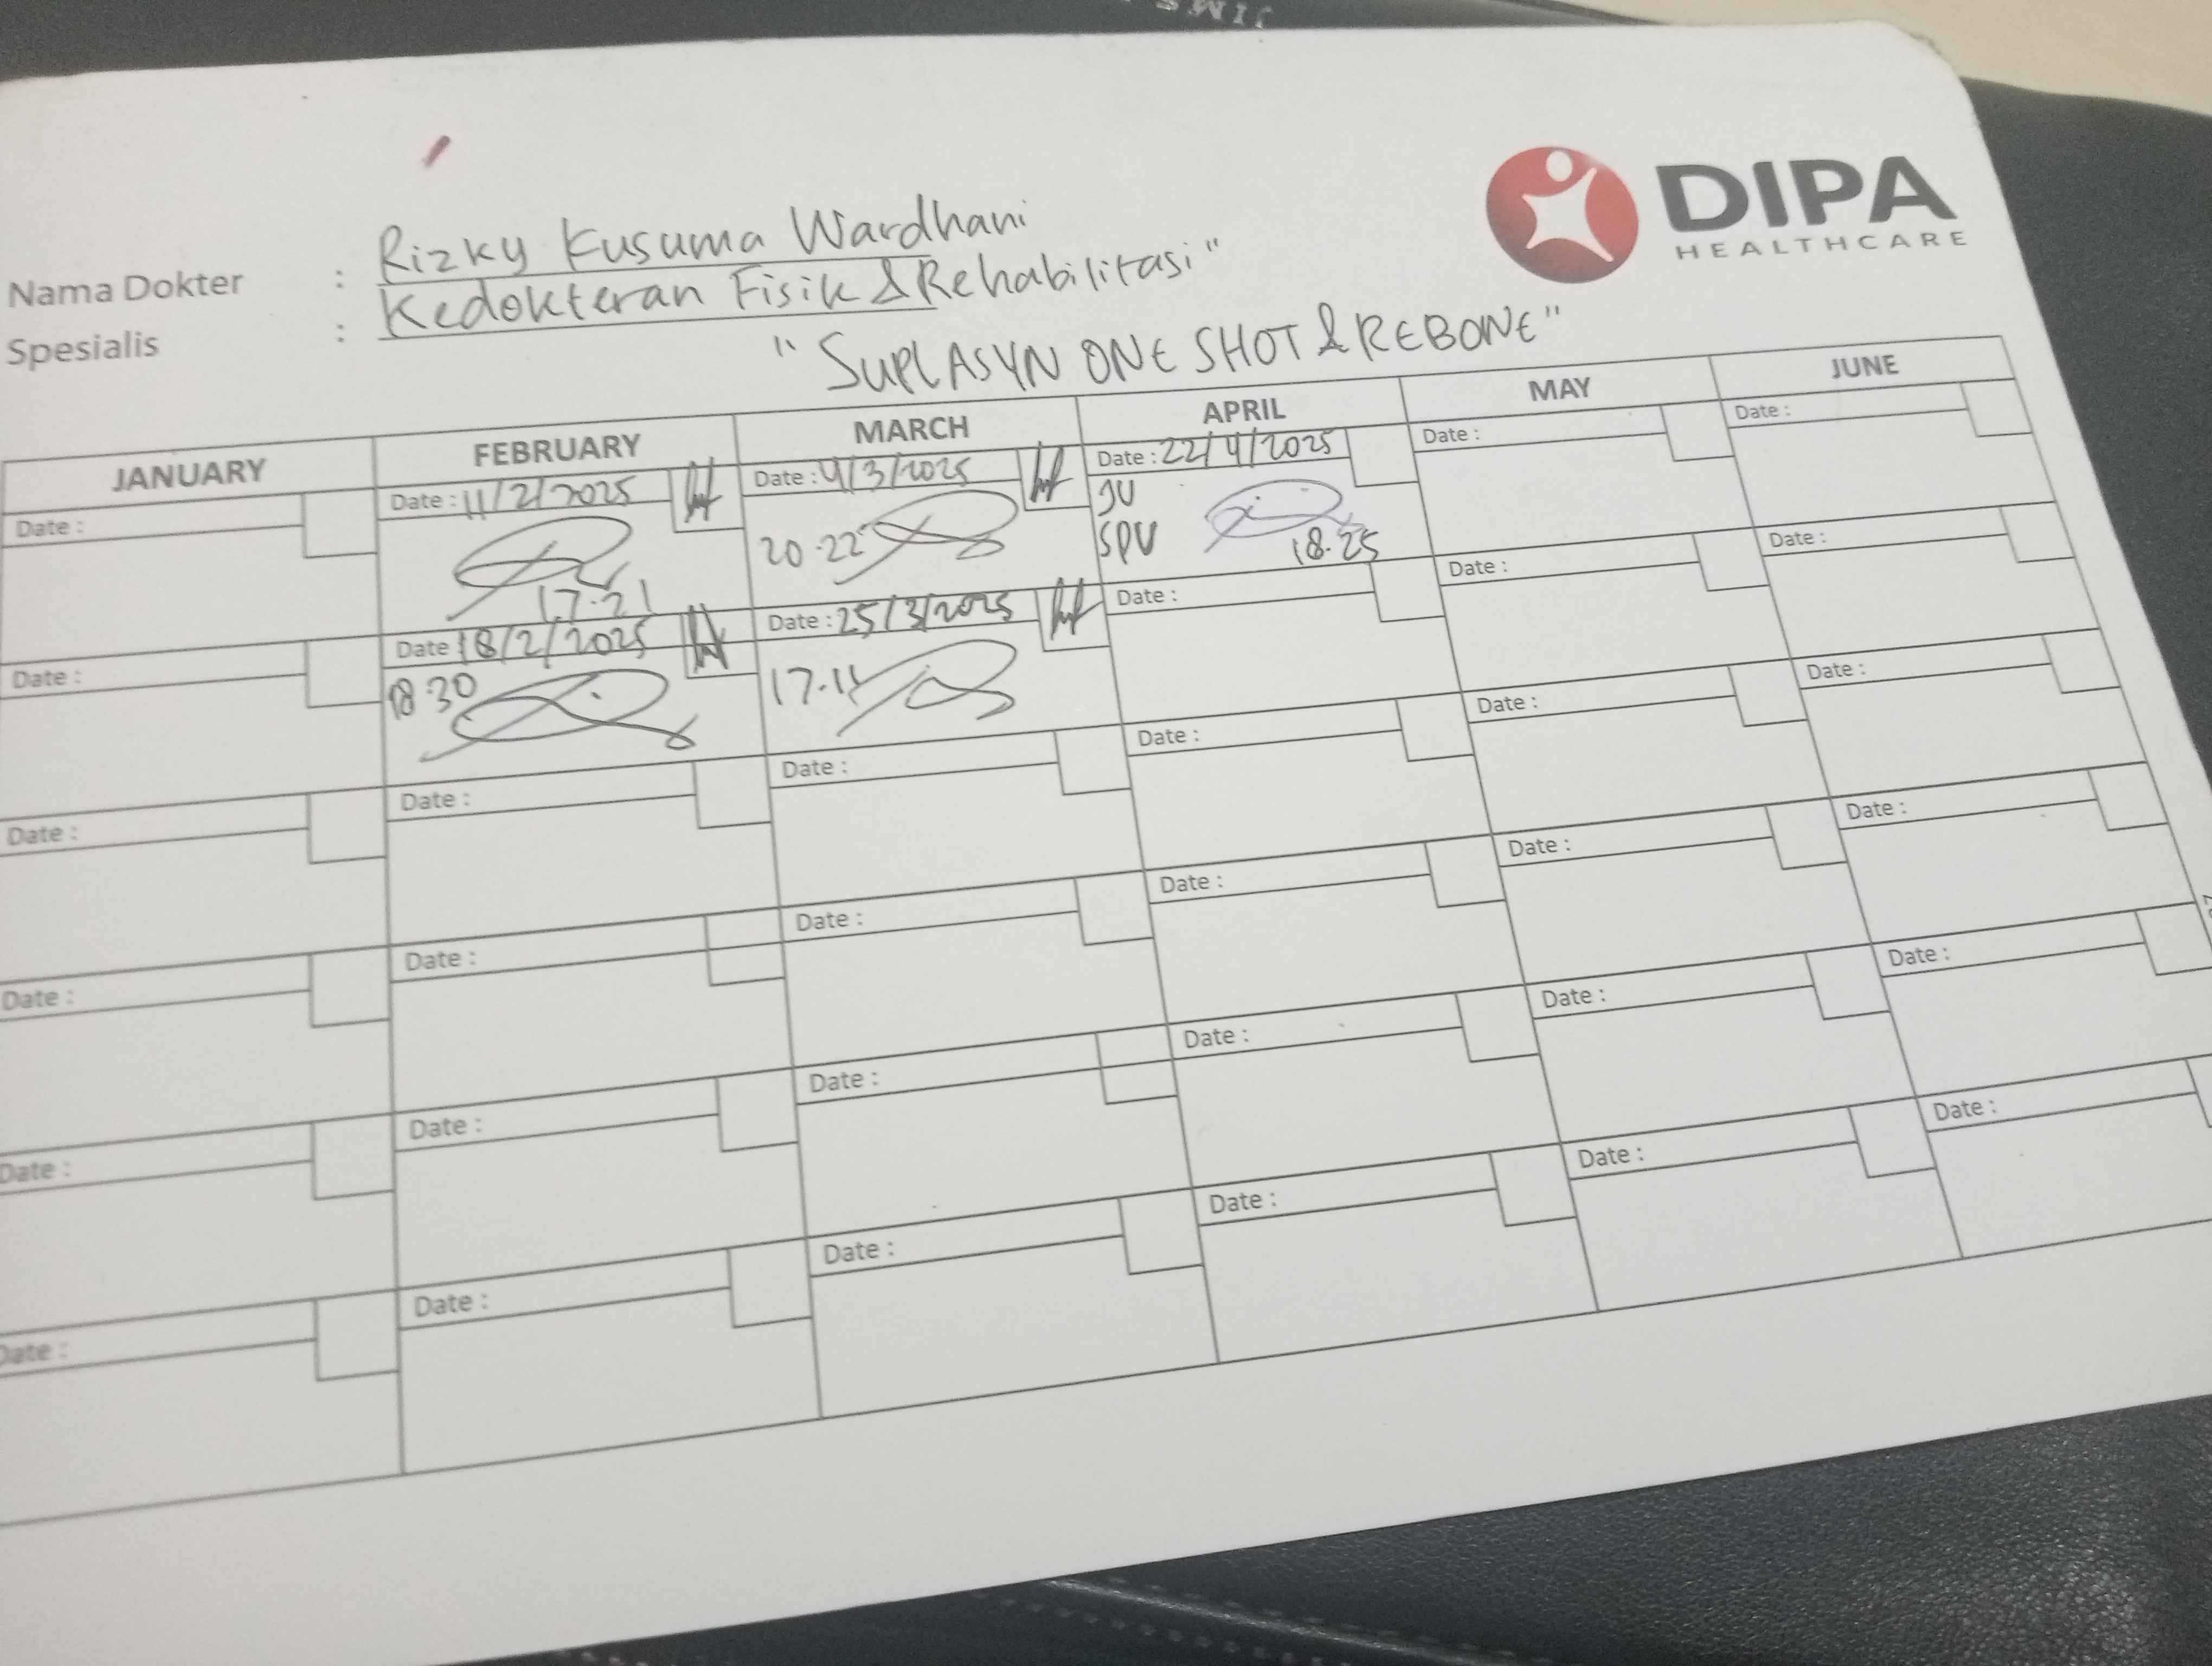 DIPA
HEALTHCARE
Nama Dokter : Rizky Kusuma Wardhani
Spesialis : Kedokteran Fisik & Rehabilitasi"
"SUPLASYN ONE SHOT & REBONE"
JANUARY FEBRUARY MARCH APRIL MAY JUNE
Date : Date : 11/2/2025 Date : 4/3/2025 Date : 22/4/2025 Date : Date :
17.21 20.22 JU
SPV 18.25
Date : Date 18/2/2025 Date : 25/3/2025 Date : Date : Date :
18.30
Date : Date : Date : Date : Date : Date :
Date : Date : Date : Date : Date : Date :
Date : Date : Date : Date : Date : Date :
Date : Date : Date : Date : Date : Date :